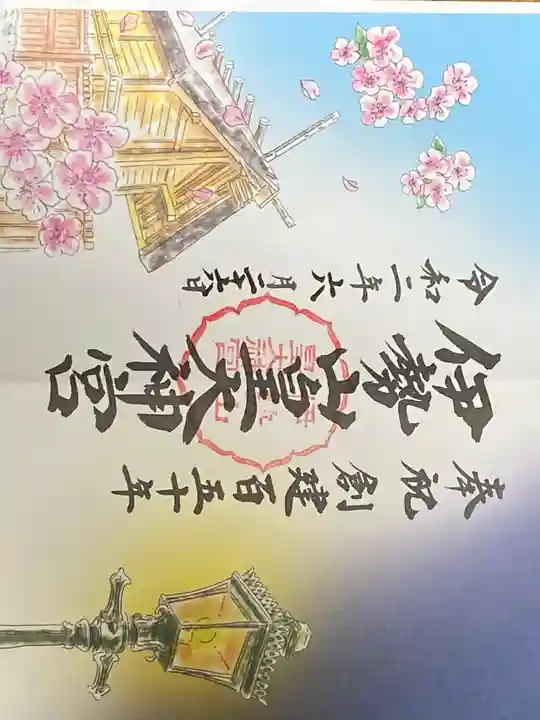 奉祝創建百五十年
伊勢山皇大神宮
令和二年六月二十六日